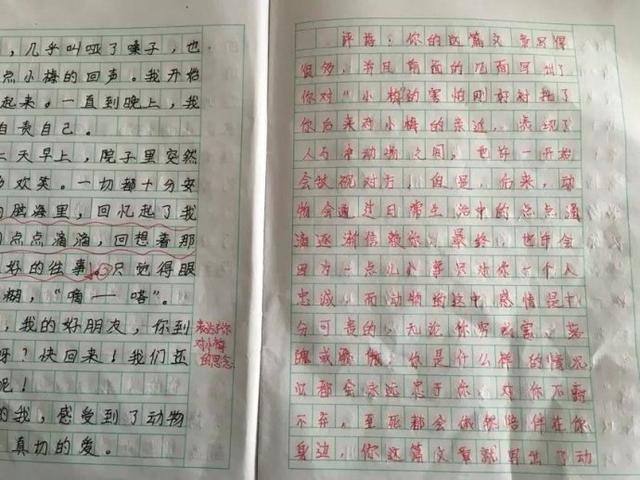 ，几乎叫哑了嗓子，也
点小梅的回声。我开始
起来。一直到晚上，我
自责自己。
二天早上，院子里突然
欢笑。一切都十分安
脑海里，回忆起了我
的点点滴滴，回想着那
好的往事。只觉得眼
糊，“嘀一嗒”。
，我的好朋友，你到
呀？快回来！我们还
呢！
的我，感受到了动物
真切的爱。
表达了你
对小梅
的思念
评语：你的这篇文章写得
很多，并且前面的几面写出了
你对“小梅”的害怕刚好衬托了
你后来对小梅的亲近，表现了
人与动物之间，也许一开始
会敌视对方，但是，后来，动
物会通过日常生活中的点点滴
滴逐渐信赖你，最终，也许会
因为一点儿小事只对你一个人
忠诚，而动物的这种感情是十
分可贵的，无论你穷或富，落
魄或骄傲，你是什么样的情况
它都会永远忠于你，对你不离
不弃，至死都会做你陪伴在你
身边，你这篇文章就写出了动